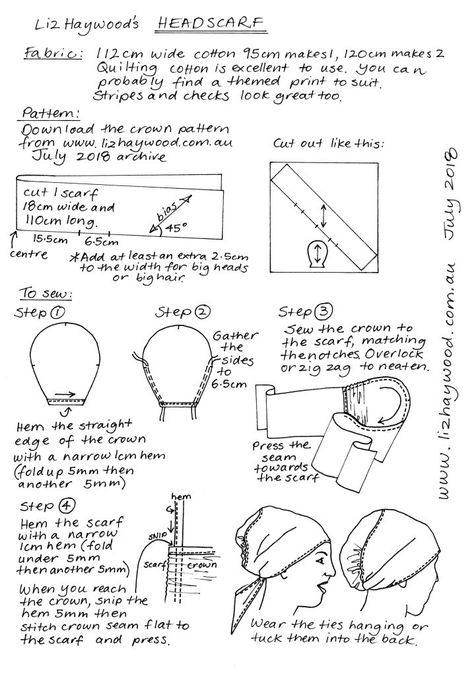 Liz Haywood's HEADSCARF
Fabric: 112cm wide cotton 95cm makes 1, 120cm makes 2
Quilting cotton is excellent to use. You can
probably find a themed print to suit.
Stripes and checks look great too.
Pattern:
Download the crown pattern
from www.lizhaywood.com.au
July 2018 archive
Cut out like this:
cut 1 scarf
18cm wide and
110cm long.
bias
45°
15.5cm 6.5cm
centre
*Add at least an extra 2.5cm
to the width for big heads
or big hair.
To sew:
Step 1
Hem the straight
edge of the crown
with a narrow 1cm hem
(fold up 5mm then
another 5mm)
Step 2
Gather
the
sides
to
6.5cm
Step 3
Sew the crown to
the scarf, matching
the notches. Overlock
or zig zag to neaten.
Press the
seam
towards
the scarf
Step 4
Hem the scarf
with a narrow
1cm hem (fold
under 5mm
then another 5mm)
When you reach
the crown, snip the
hem 5mm then
stitch crown seam flat to
the scarf and press.
hem
snip
scarf
crown
Wear the ties hanging or
tuck them into the back.
www.lizhaywood.com.au July 2018